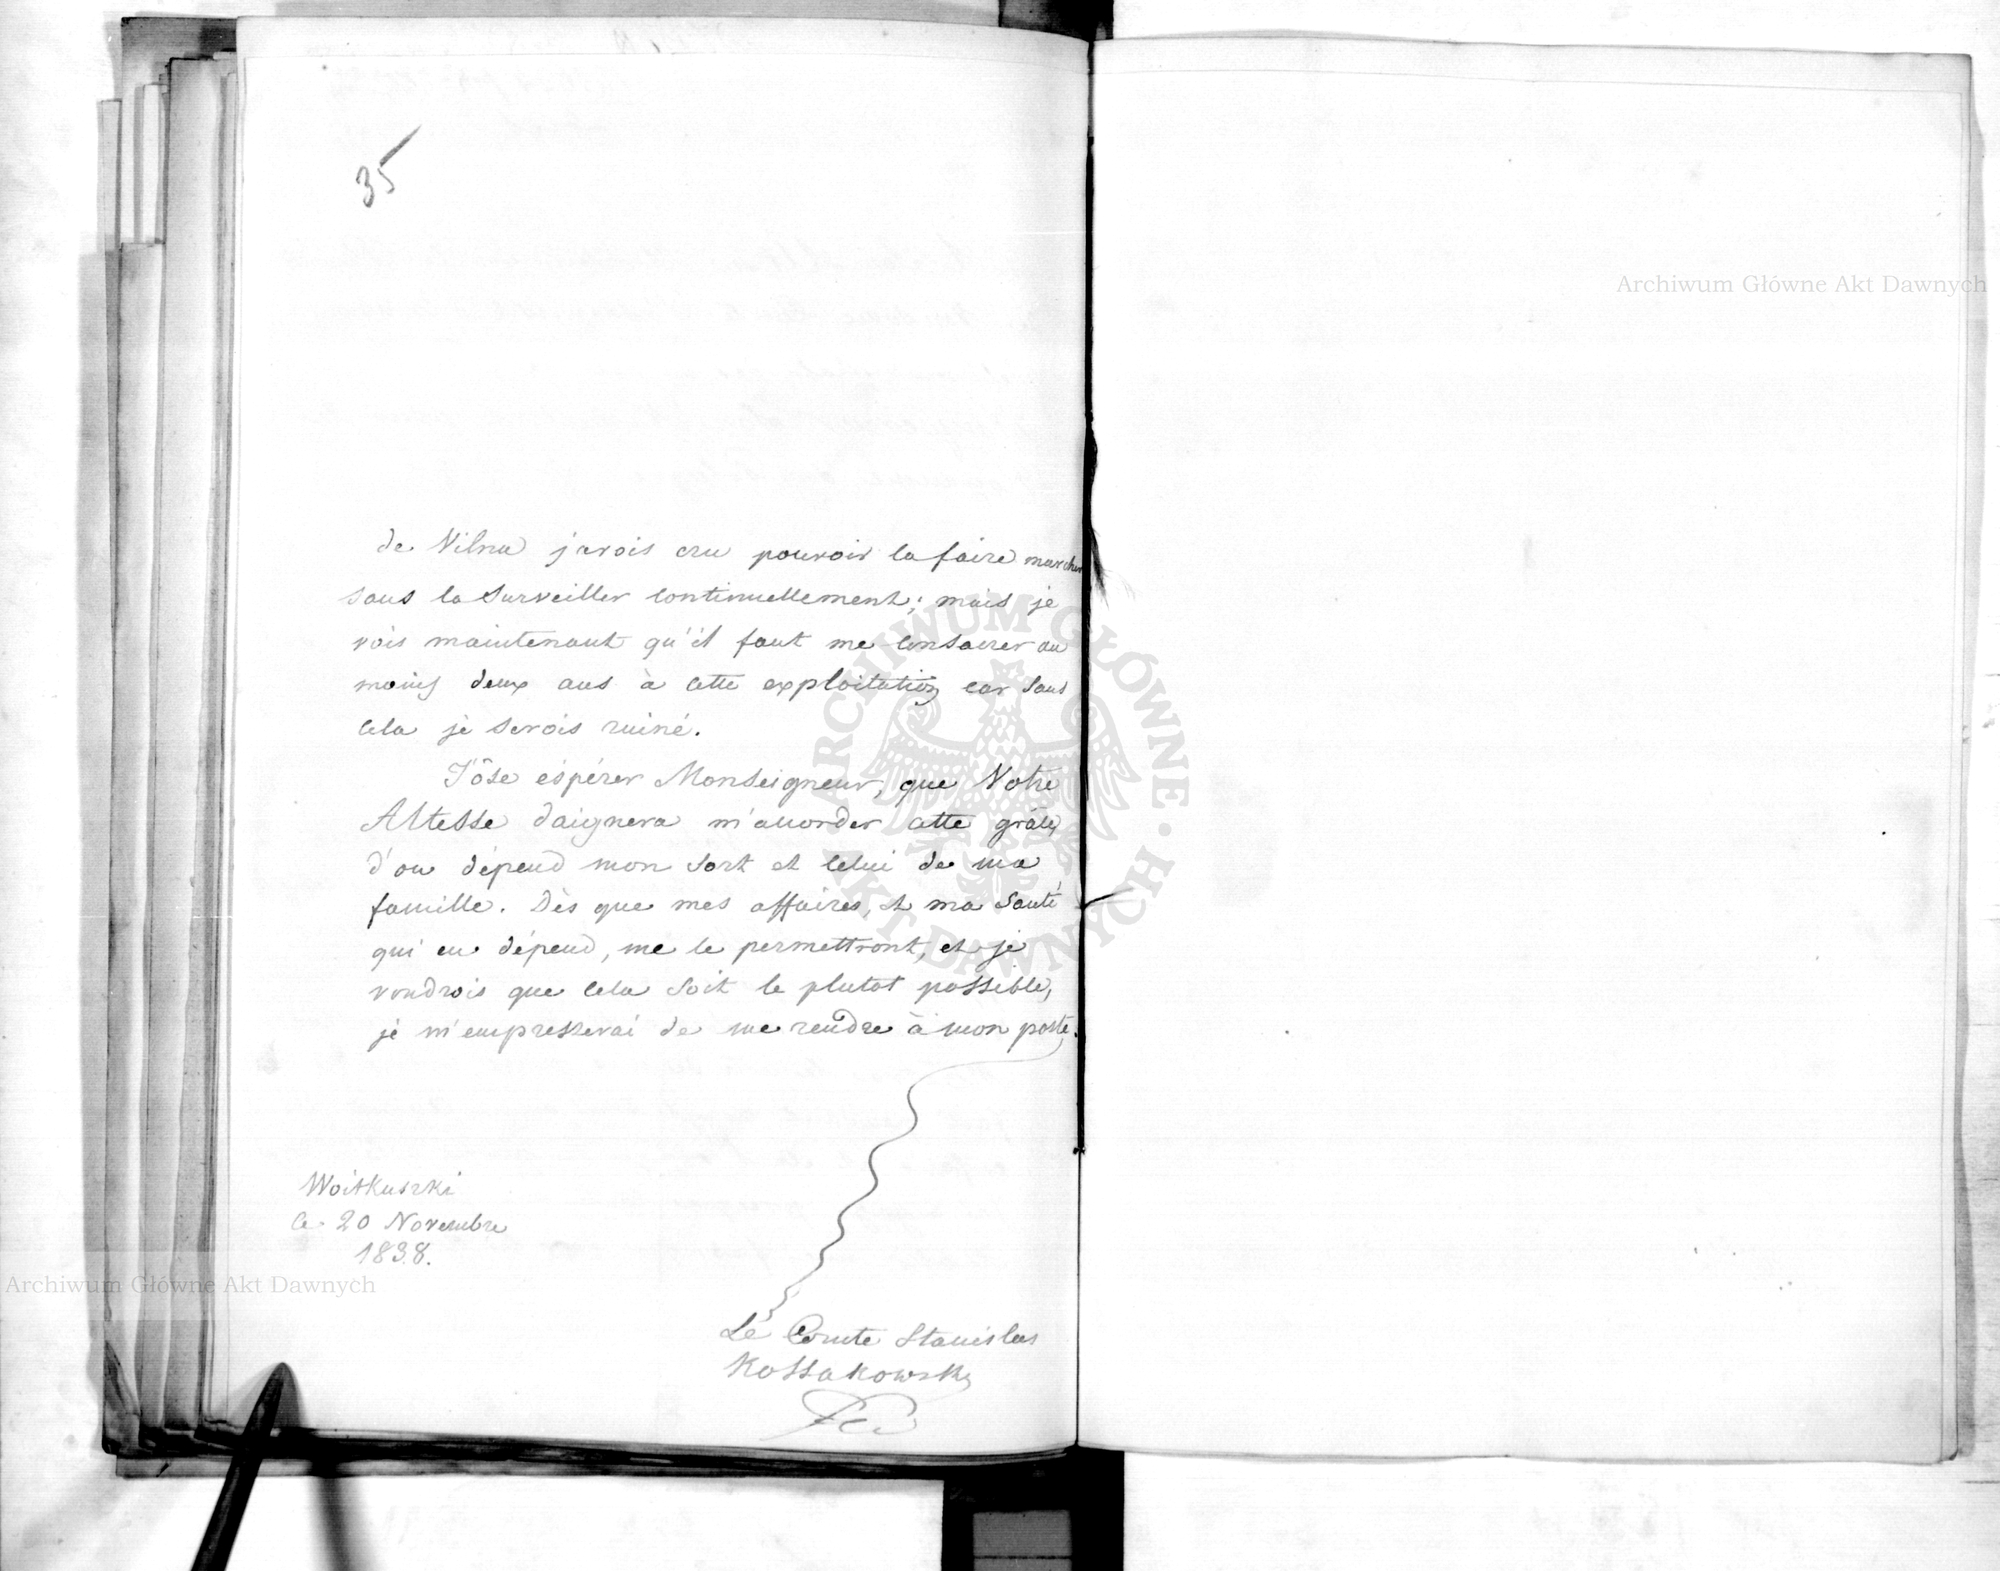 35
de Vilna j'avois cru pouvoir la faire marcher
sans la surveiller continuellement; mais je
vois maintenant qu'il faut me consacrer au
moins deux ans à cette exploitation car sans
cela je serois ruiné.
J'ôse éspérer Monseigneur, que Votre
Altesse daignera m'accorder cette grâce,
d'ou dépend mon sort et celui de ma
famille. Dès que mes affaires, et ma santé
qui en dépend, me le permettront, et je
voudrois que cela soit le plutot possible,
je m'empresserai de me rendre à mon poste.
Woitkuszki
le 20 Novembre
1838.
Le Comte Stanislas
Kossakowski
Archiwum Główne Akt Dawnych
Archiwum Główne Akt Dawnych
ARCHIWUM GŁÓWNE AKT DAWNYCH